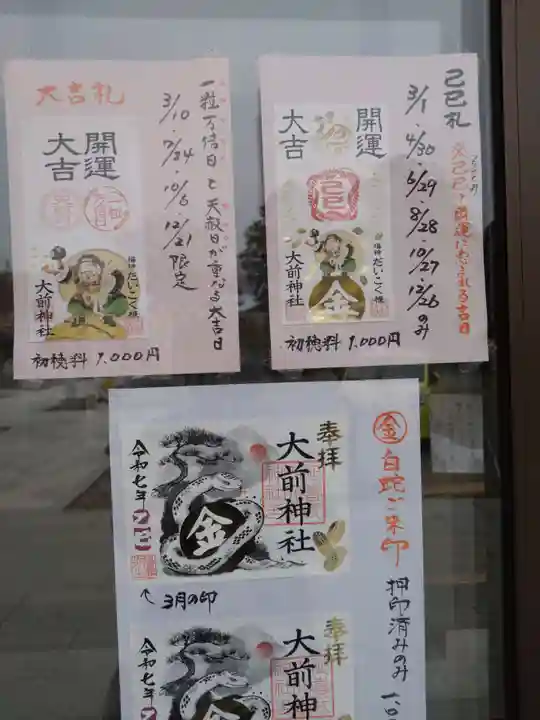 大吉札
一粒万倍日と天赦日が重なる大吉日
3/10、7/24、10/6、12/21限定
開運
大吉
福神だいこく様
大前神社
初穂料 1.000円
己巳札
金運・開運にめぐまれる吉日
3/1、4/30、6/29、8/28、10/27、12/26のみ
開運
大吉
己巳
福神だいこく様
大前神社
金
初穂料 1.000円
㊎白蛇ご朱印
押印済みのみ
奉拝
大前神社
金
令和七年
乙巳
↖3月の印
奉拝
大前神社
金
令和七年